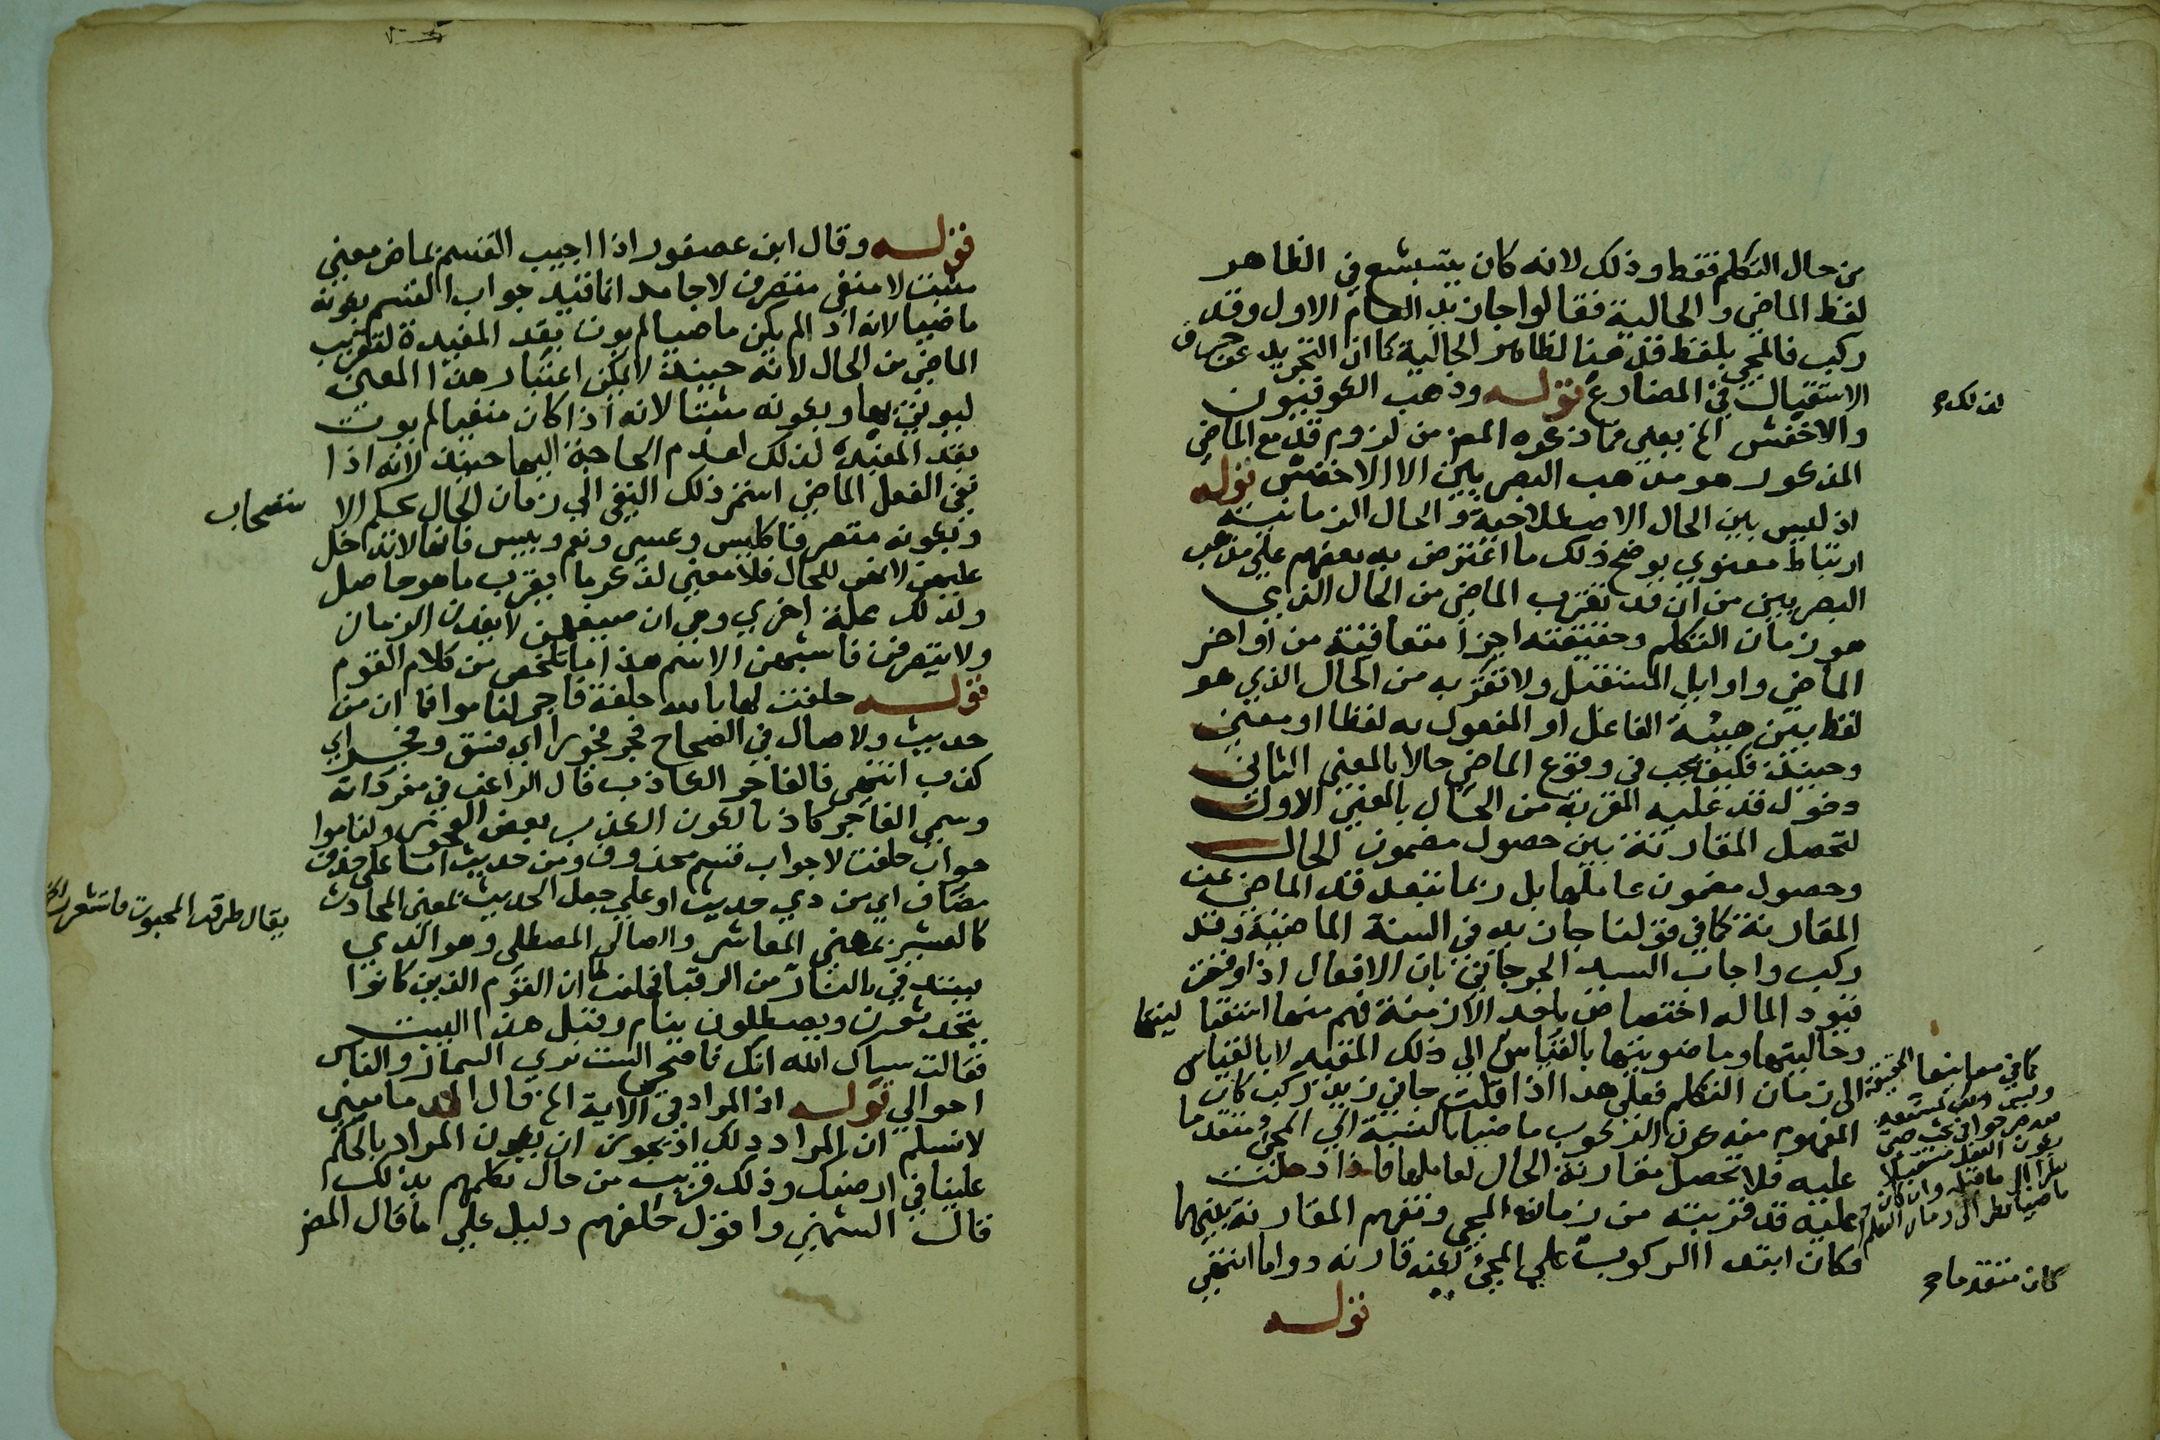 من حال التكلم فقط وذلك لانه كان يتبشع في الظاهر
لفظ الماضي والحالية فقالوا جا زيد العام الاول وقد
ركب فالمجي بلفظ قد هنا لظاهر الحالية كما ان التجريد عن حرف
الاستقبال في المضارع لذلك قوله وذهب الكوفيون
والاخفش الخ يعني فما ذكره المصر من لزوم قد مع الماضي
المذكور هو مذهب البصريين الا الاخفش قوله
اذ ليس بين الحال الاصطلاحية والحال الزمانية
ارتباط معنوي يوضح ذلك ما اعترض به بعضهم علي مذهب
البصريين من ان قد تقرب الماضي من الحال الذي
هو زمان التكلم وحقيقته اجزا متعاقبة من اواخر
الماضي واوايل المستقبل ولا تقربه من الحال الذي هو
لفظ يبين هيئة الفاعل او المفعول به لفظا او معني
وحينئذ فكيف يجب في وقوع الماضي حالا بالمعني الثاني
دخول قد عليه المقربة من الحال بالمعني الاول
لتحصل المقارنة بين حصول مضمون الحال
وحصول مضمون عاملها بل ربما تبعد قد الماضي عن
المقارنة كما في قولنا جا زيد في السنة الماضية وقد
ركب واجاب السيد الجرجاني بان الافعال اذا وقعن
قيودا لما له اختصاص باحد الازمنة فهم منها استقباليتها
وحاليتها وماضويتها بالقياس الي ذلك المقيد لا بالقياس
الي زمان التكلم كما في معانيها الحقيقية فعلي هذا اذا قلت جاني زيد ركب كان
المفهوم منه كون الركوب ماضيا بالنسبة الي المجي ومتقدما
عليه فلا تحصل مقارنة الحال لعاملها فاذا دخلت
عليه قد قربته من زمان المجي وتفهم المقارنة بينهما
وكان ابتدا الركوب كان متقدما علي المجي لكنه قارنه دواما انتهي
وليس ذلك بمستبعد
فقد صرحوا في بحث حتي
بكون الفعل مستقبلا
نظرا الي ما قبله وان كان
ماضيا نظرا الي زمان التكلم
قوله
قوله وقال ابن عصفور اذا اجيب القسم بماض معني
مثبت لا منفي متصرف لا جامد انما قيد جواب القسم بكونه
ماضيا لانه اذا لم يكن ماضيا لم يوت بقد المفيدة لتقريب
الماضي من الحال لانه حينئذ لا يمكن اعتبار هذا المعني
ليوتي بها وبكونه مثبتا لانه اذا كان منفيا لم يوت
بقد المفيدة لذلك لعدم الحاجة اليها حينئذ لانه اذا
نفي الفعل الماضي استمر ذلك النفي الي زمان الحال بحكم الاستصحاب
وبكونه متصرفا كليس وعسي ونعم وبيس فانها لا تدخل
عليهن لانهن للحال فلا معني لذكر ما يقرب ما هو حاصل
ولذلك علة اخري وهي ان صيغهن لا يفدن الزمان
ولا يتصرفن فاشبهن الاسم هذا ما تلخص من كلام القوم
قوله حلفت لها بالله حلفة فاجر لناموا فما ان من
حديث ولا صال في الصحاح فجر فجورا اي فسق وفجر اي
كذب انتهي فالفاجر الكاذب قال الراغب في مفرداته
وسمي الفاجر كاذبا لكون الكذب بعض الفجور ولناموا
جواب حلفت لا جواب قسم محذوف ومن حديث اما علي حذف
مضاف اي من ذي حديث او علي جعل الحديث بمعني المحادث
كالعشير بمعني المعاشر والصالي المصطلي وهو الذي
يستدفي بالنار من الرقبا فحلفت لها ان القوم الذين كانوا
يتحدثون ويصطلون نيام وقبل هذا البيت
فقالت سباك الله انك فاضحي الست تري السمار والناس
احوالي قوله اذ المراد في الاية الخ قال الد ما معني
لا نسلم ان المراد ذلك اذ يجوز ان يكون المراد بالحكم
علينا في ارضك وذلك قريب من حال تكلمهم بذلك
قال الشمني واقول حلفهم دليل علي ما قال المصر
يقال طرقه المحبوب واستشعر الخ